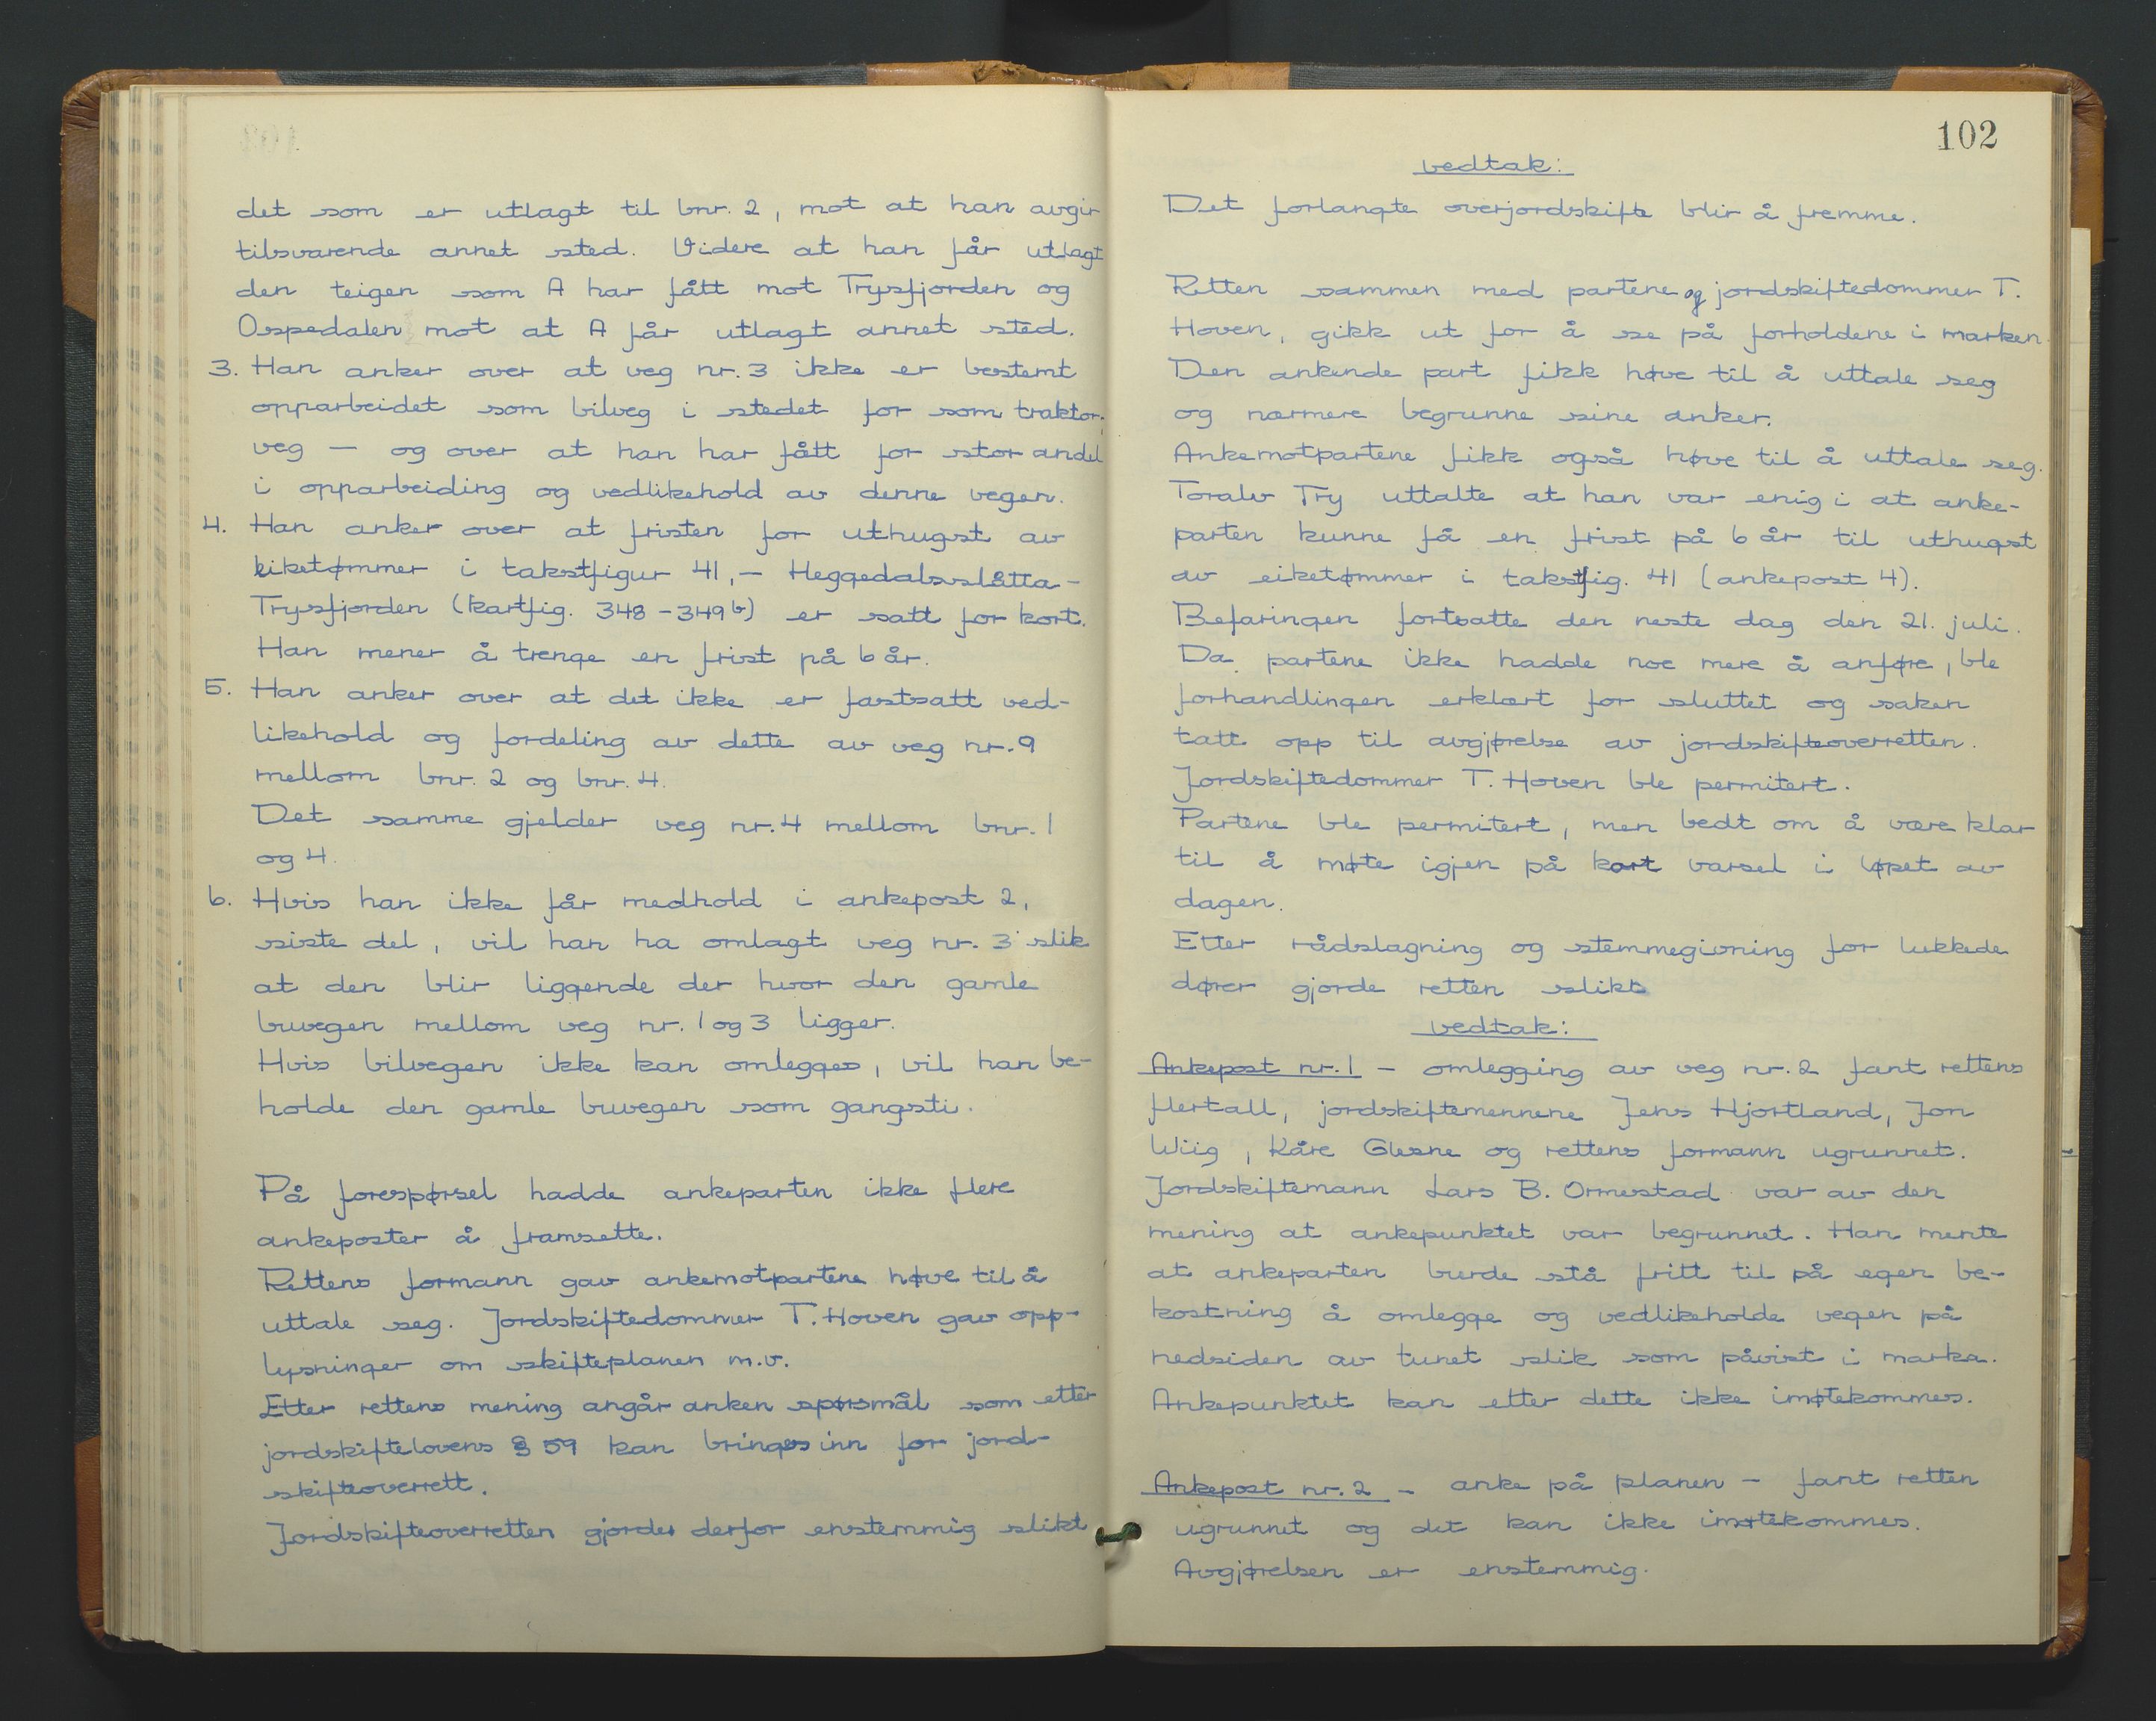 det som er utlagt til bnr. 2, mot at han avgir
tilsvarende annet sted. Videre at han får utlagt
den teigen som A har fått mot Trysfjorden og
Ospedalen mot at A får utlagt annet sted.
3. Han anker over at veg nr. 3 ikke er bestemt
opparbeidet som bilveg i stedet for som traktor-
veg — og over at han har fått for stor andel
i opparbeiding og vedlikehold av denne vegen.
4. Han anker over at fristen for uthugst av
eiketømmer i takstfigur 41, - Heggedalsslåtta -
Trysfjorden (kartfig. 348 - 349b) er satt for kort.
Han mener å trenge en frist på 6 år.
5. Han anker over at det ikke er fastsatt ved-
likehold og fordeling av dette av veg nr. 9
mellom bnr. 2 og bnr. 4.
Det samme gjelder veg nr. 4 mellom bnr. 1
og 4.
6. Hvis han ikke får medhold i ankepost 2,
siste del, vil han ha omlagt veg nr. 3 slik
at den blir liggende der hvor den gamle
buvegen mellom veg nr. 1 og 3 ligger.
Hvis bilvegen ikke kan omlegges, vil han be-
holde den gamle buvegen som gangsti.
På forespørsel hadde ankeparten ikke flere
ankeposter å framsette.
Rettens formann gav ankemotpartene høve til å
uttale seg. Jordskiftedommer T. Hoven gav opp-
lysninger om skifteplanen m.v.
Etter rettens mening angår anken spørsmål som etter
jordskiftelovens § 59 kan bringes inn for jord-
skifteoverrett.
Jordskifteoverretten gjorde derfor enstemmig slikt
102
vedtak:
Det forlangte overjordskifte blir å fremme.
Retten sammen med partene og jordskiftedommer T.
Hoven, gikk ut for å se på forholdene i marken.
Den ankende part fikk høve til å uttale seg
og nærmere begrunne sine anker.
Ankemotpartene fikk også høve til å uttale seg.
Toralv Try uttalte at han var enig i at anke-
parten kunne få en frist på 6 år til uthugst
av eiketømmer i takstfig. 41 (ankepost 4).
Befaringen fortsatte den neste dag den 21. juli.
Da partene ikke hadde noe mere å anføre, ble
forhandlingen erklært for sluttet og saken
tatt opp til avgjørelse av jordskifteoverretten.
Jordskiftedommer T. Hoven ble permitert.
Partene ble permitert, men bedt om å være klar
til å møte igjen på kort varsel i løpet av
dagen.
Etter rådslagning og stemmegivning for lukkede
dører gjorde retten slikt
vedtak:
Ankepost nr. 1 - omlegging av veg nr. 2 fant rettens
flertall, jordskiftemennene Jens Hjortland, Jon
Wiig, Kåre Glesne og rettens formann ugrunnet.
Jordskiftemann Lars B. Ormestad var av den
mening at ankepunktet var begrunnet. Han mente
at ankeparten burde stå fritt til på egen be-
kostning å omlegge og vedlikeholde vegen på
nedsiden av tunet slik som påvist i marka.
Ankepunktet kan etter dette ikke imøtekommes.
Ankepost nr. 2 - anke på planen - fant retten
ugrunnet og det kan ikke imøtekommes.
Avgjørelsen er enstemmig.